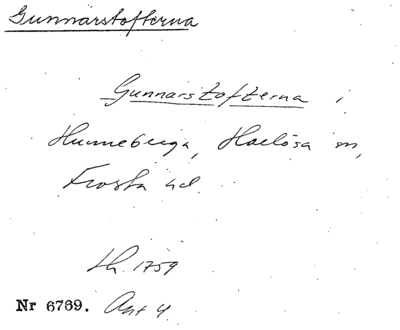 Gunnarstofterna
Gunnarstofterna i
Hunneberga, Harlösa sn,
Frosta hd.
Lh. 1759
Nr 6769. Akt 4